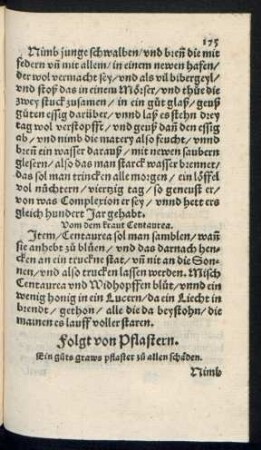 175
Nimb junge schwalben/ vnd breñ die mit
federn vñ mit allem/ in einem newen hafen/
der wol vermacht sey/ vnd als vil bibergeyl/
vnd stoß das in einem Mörser/ vnd thůe die
zwey stuck zusamen/ in ein gůt glaß/ geuß
gůten essig darüber/ vnnd laß es stehn drey
tag wol verstopfft/ vnd geuß dañ den essig
ab/ vnd nimb die matery also feucht/ vnnd
breñ ein wasser darauß/ mit newen saubern
glesern/ also das man starck wasser brennet/
das sol man trincken alle morgen/ ein löffel
vol nüchtern/ viertzig tag/ so geneust er/
von was Complexion er sey/ vnnd hett ers
gleich hundert Jar gehabt.
Vom dem kraut Centaurea.
Item/ Centaurea sol man samblen/ wañ
sie anhebt zu blüen/ vnd das darnach hen-
cken an ein truckne stat/ vñ nit an die Son-
nen/ vnd also trucken lassen werden. Misch
Centaurea vnd Widhopffen blůt/ vnnd ein
wenig honig in ein Lucern/ da ein Liecht in
brendt/ gethon/ alle die da beystohn/ die
mainen es lauff voller staren.
Folgt von Pflastern.
Ein gůts graws pflaster zů allen schäden.
Nimb